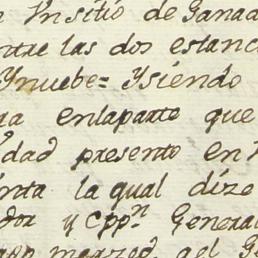 Vnsitio de Ganad
ntre las dos estanci
Ynuebe= Ysiendo
enlaparte que
dad presento en
nta la qual dize
dor y Cppn General
merzed del